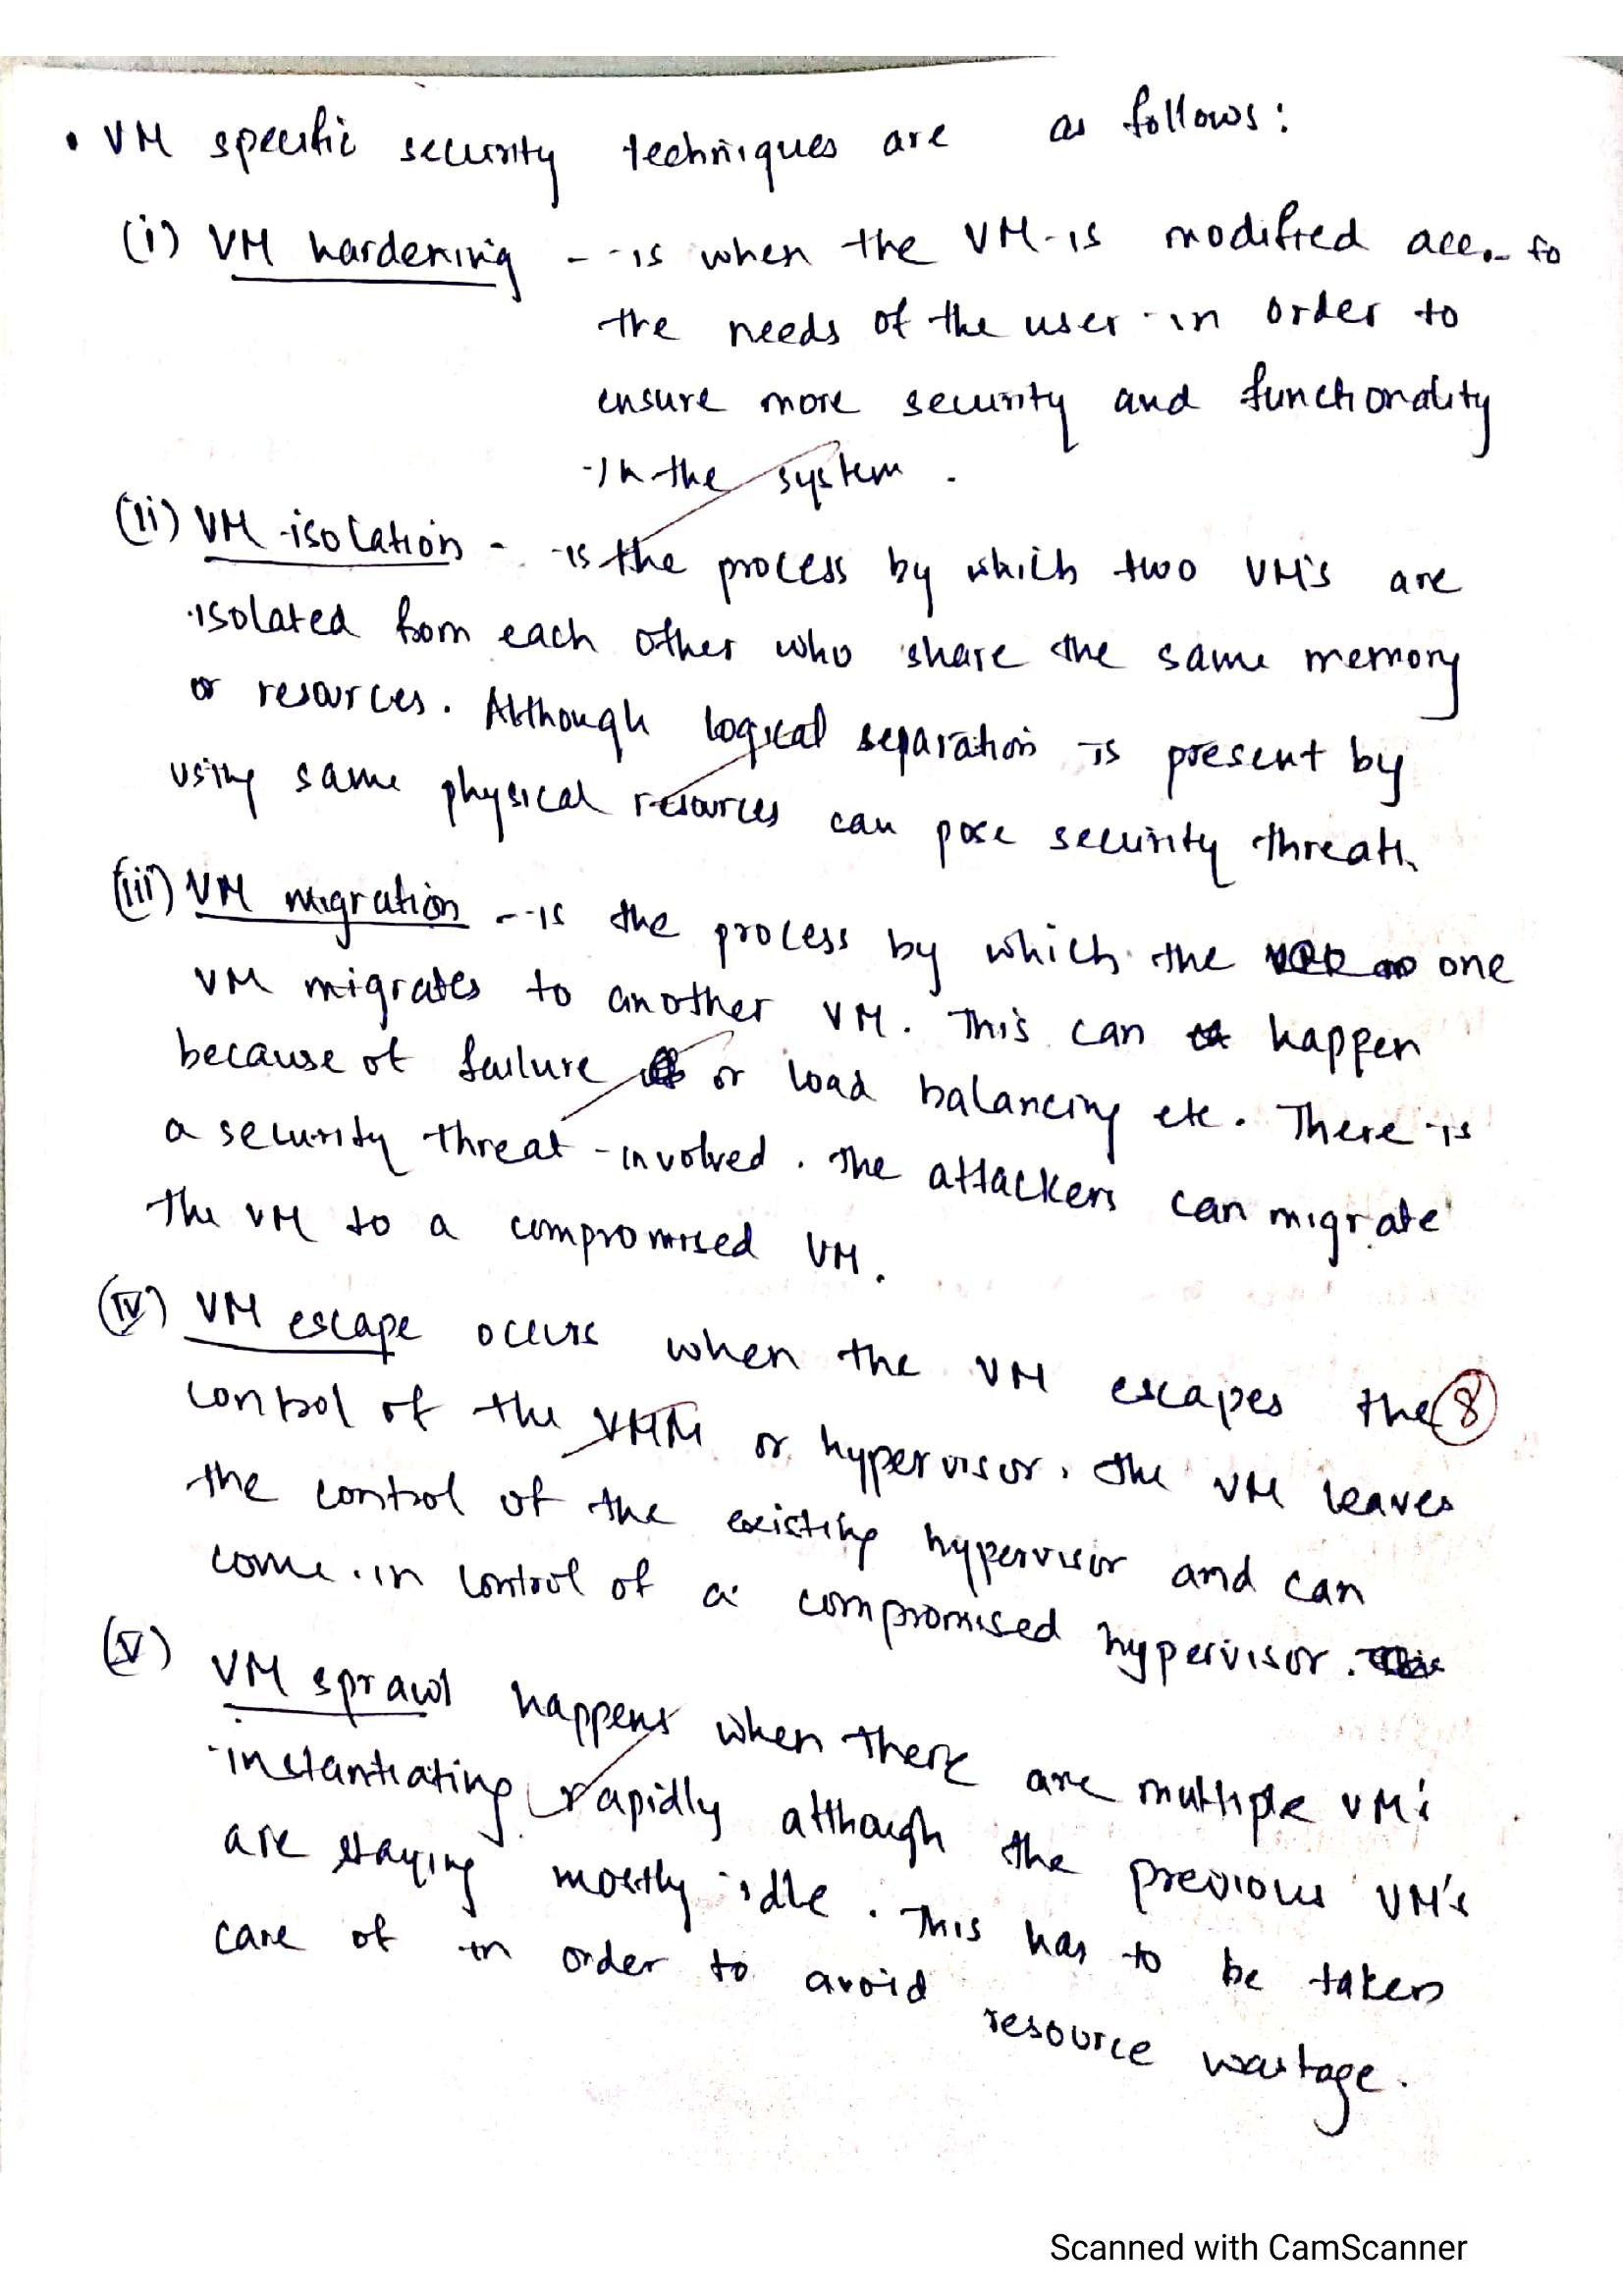 • VM specific security techniques are as follows:
(i) VM hardening - - is when the VM is modified acc. to
the needs of the user in order to
ensure more security and functionality
in the system.
(ii) VM isolation - is the process by which two VM's are
isolated from each other who share the same memory
or resources. Although logical separation is present by
using same physical resources can pose security threats.
(iii) VM migration - is the process by which the one
VM migrates to another VM. This can happen
because of failure or load balancing etc. There is
a security threat involved. The attackers can migrate
the VM to a compromised VM.
(iv) VM escape occurs when the VM escapes the
8
control of the VMM or hypervisor. The VM leaves
the control of the existing hypervisor and can
come in control of a compromised hypervisor.
(v) VM sprawl happens when there are multiple VM's
instantiating rapidly although the previous VM's
are staying mostly idle. This has to be taken
care of in order to avoid resource wastage.
Scanned with CamScanner